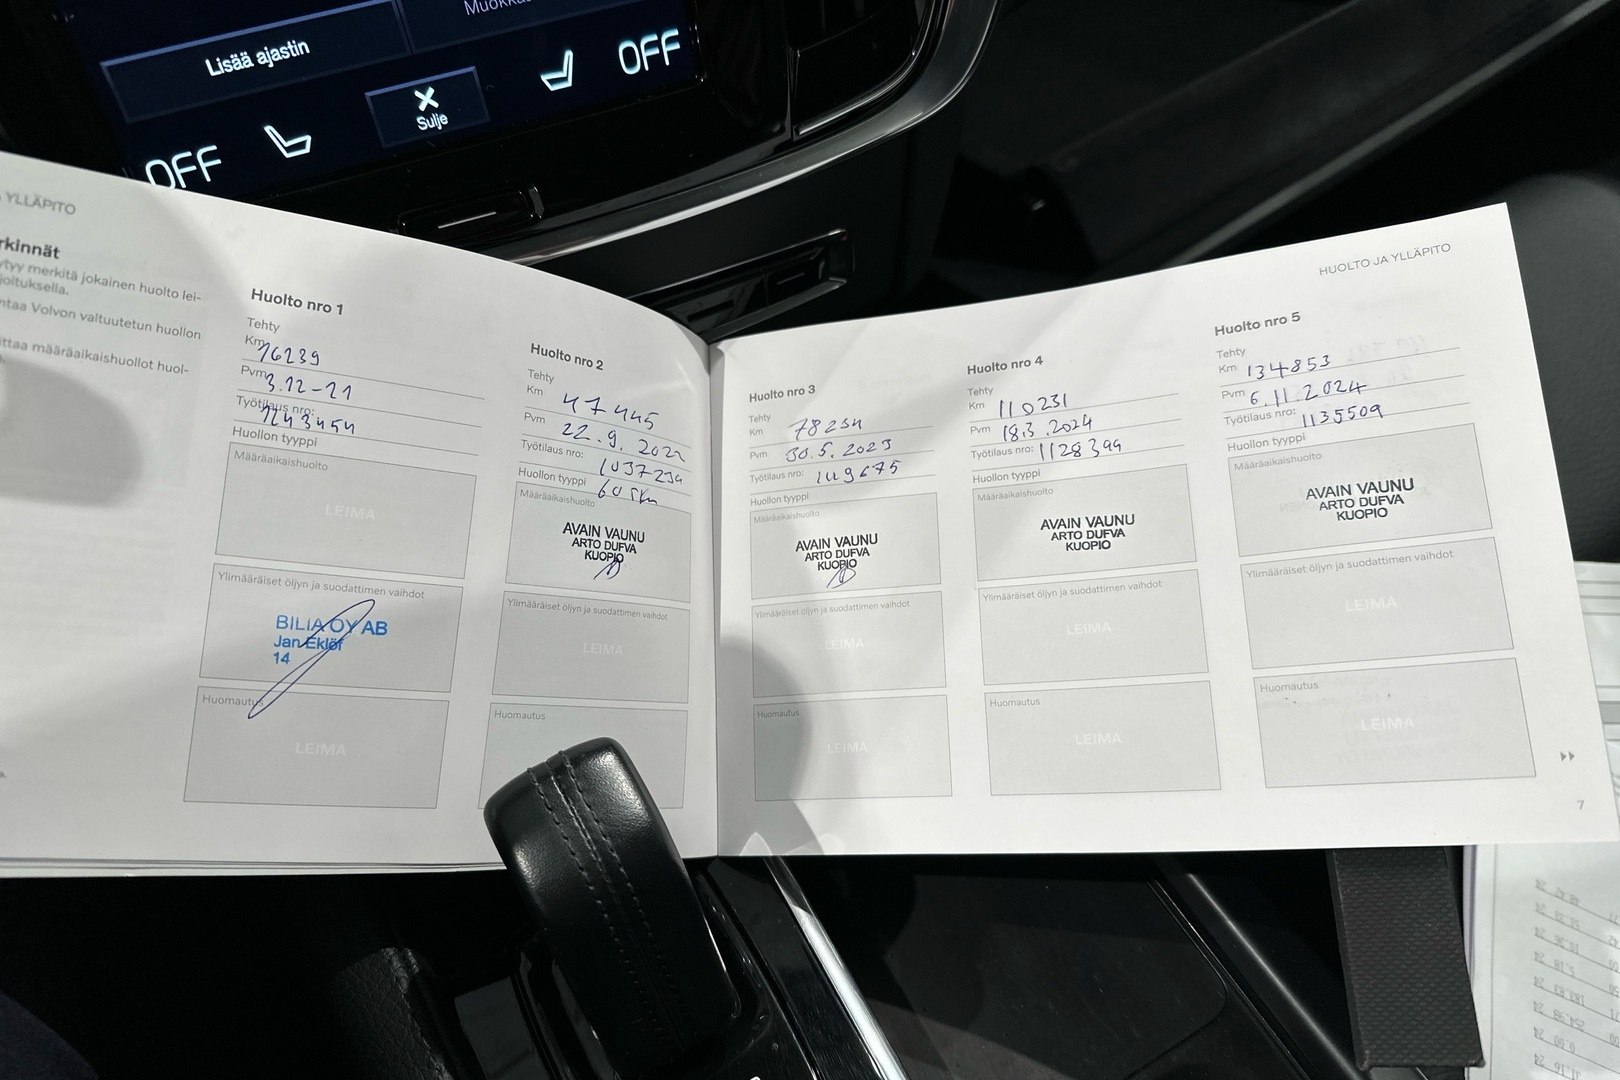 Lisää ajastin
OFF
Sulje
OFF
YLLÄPITO
rkinnät
tyy merkitä jokainen huolto lei-
joituksella.
ntaa Volvon valtuutetun huollon
ittaa määräaikaishuollot huol-
Huolto nro 1
Tehty
Km 16239
Pvm 3.12-21
Työtilaus nro: 1243454
Huollon tyyppi
Määräaikaishuolto
LEIMA
Ylimääräiset öljyn ja suodattimen vaihdot
BILIA OY AB
Jan Eklöf
14
Huomautus
LEIMA
Huolto nro 2
Tehty
Km 47445
Pvm 22.9.2022
Työtilaus nro: 1037234
Huollon tyyppi
Määräaikaishuolto
AVAIN VAUNU
ARTO DUFVA
KUOPIO
Ylimääräiset öljyn ja suodattimen vaihdot
LEIMA
Huomautus
HUOLTO JA YLLÄPITO
Huolto nro 3
Tehty
Km 78234
Pvm 30.5.2023
Työtilaus nro: 1119675
Huollon tyyppi
Määräaikaishuolto
AVAIN VAUNU
ARTO DUFVA
KUOPIO
Ylimääräiset öljyn ja suodattimen vaihdot
LEIMA
Huomautus
LEIMA
Huolto nro 4
Tehty
Km 110231
Pvm 18.3.2024
Työtilaus nro: 1128399
Huollon tyyppi
Määräaikaishuolto
AVAIN VAUNU
ARTO DUFVA
KUOPIO
Ylimääräiset öljyn ja suodattimen vaihdot
LEIMA
Huomautus
LEIMA
Huolto nro 5
Tehty
Km 134853
Pvm 6.11.2024
Työtilaus nro: 1135509
Huollon tyyppi
Määräaikaishuolto
AVAIN VAUNU
ARTO DUFVA
KUOPIO
Ylimääräiset öljyn ja suodattimen vaihdot
LEIMA
Huomautus
LEIMA
7